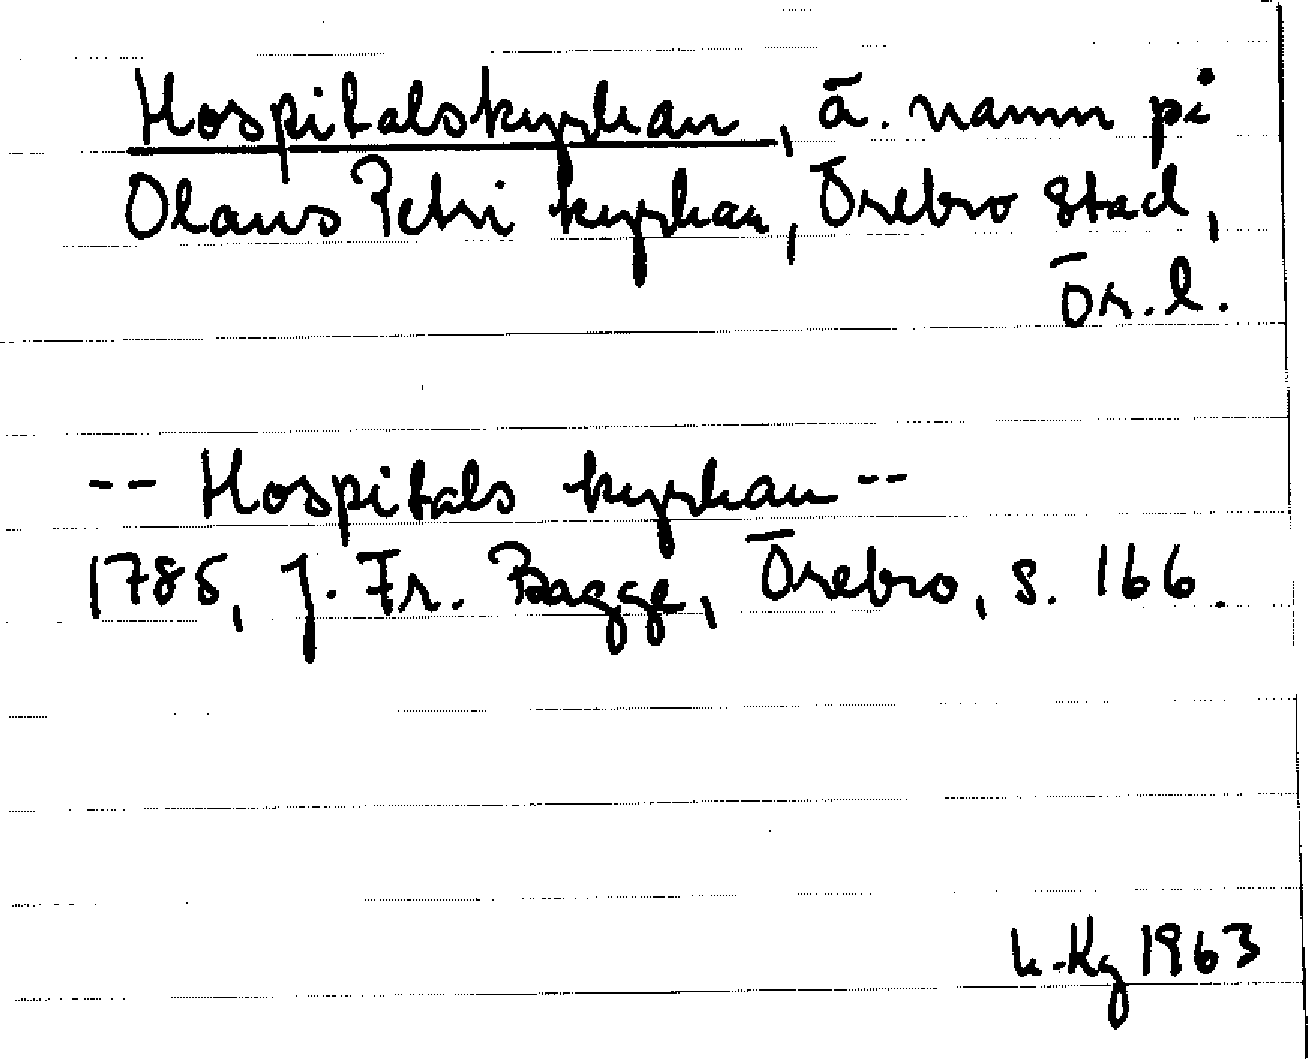 Hospitalskyrkan, ä. namn på
Olaus Petri kyrkan, Örebro stad,
Ör.l.
-- Hospitals kyrkan --
1785, J. Fr. Bagge, Örebro, s. 166.
1963